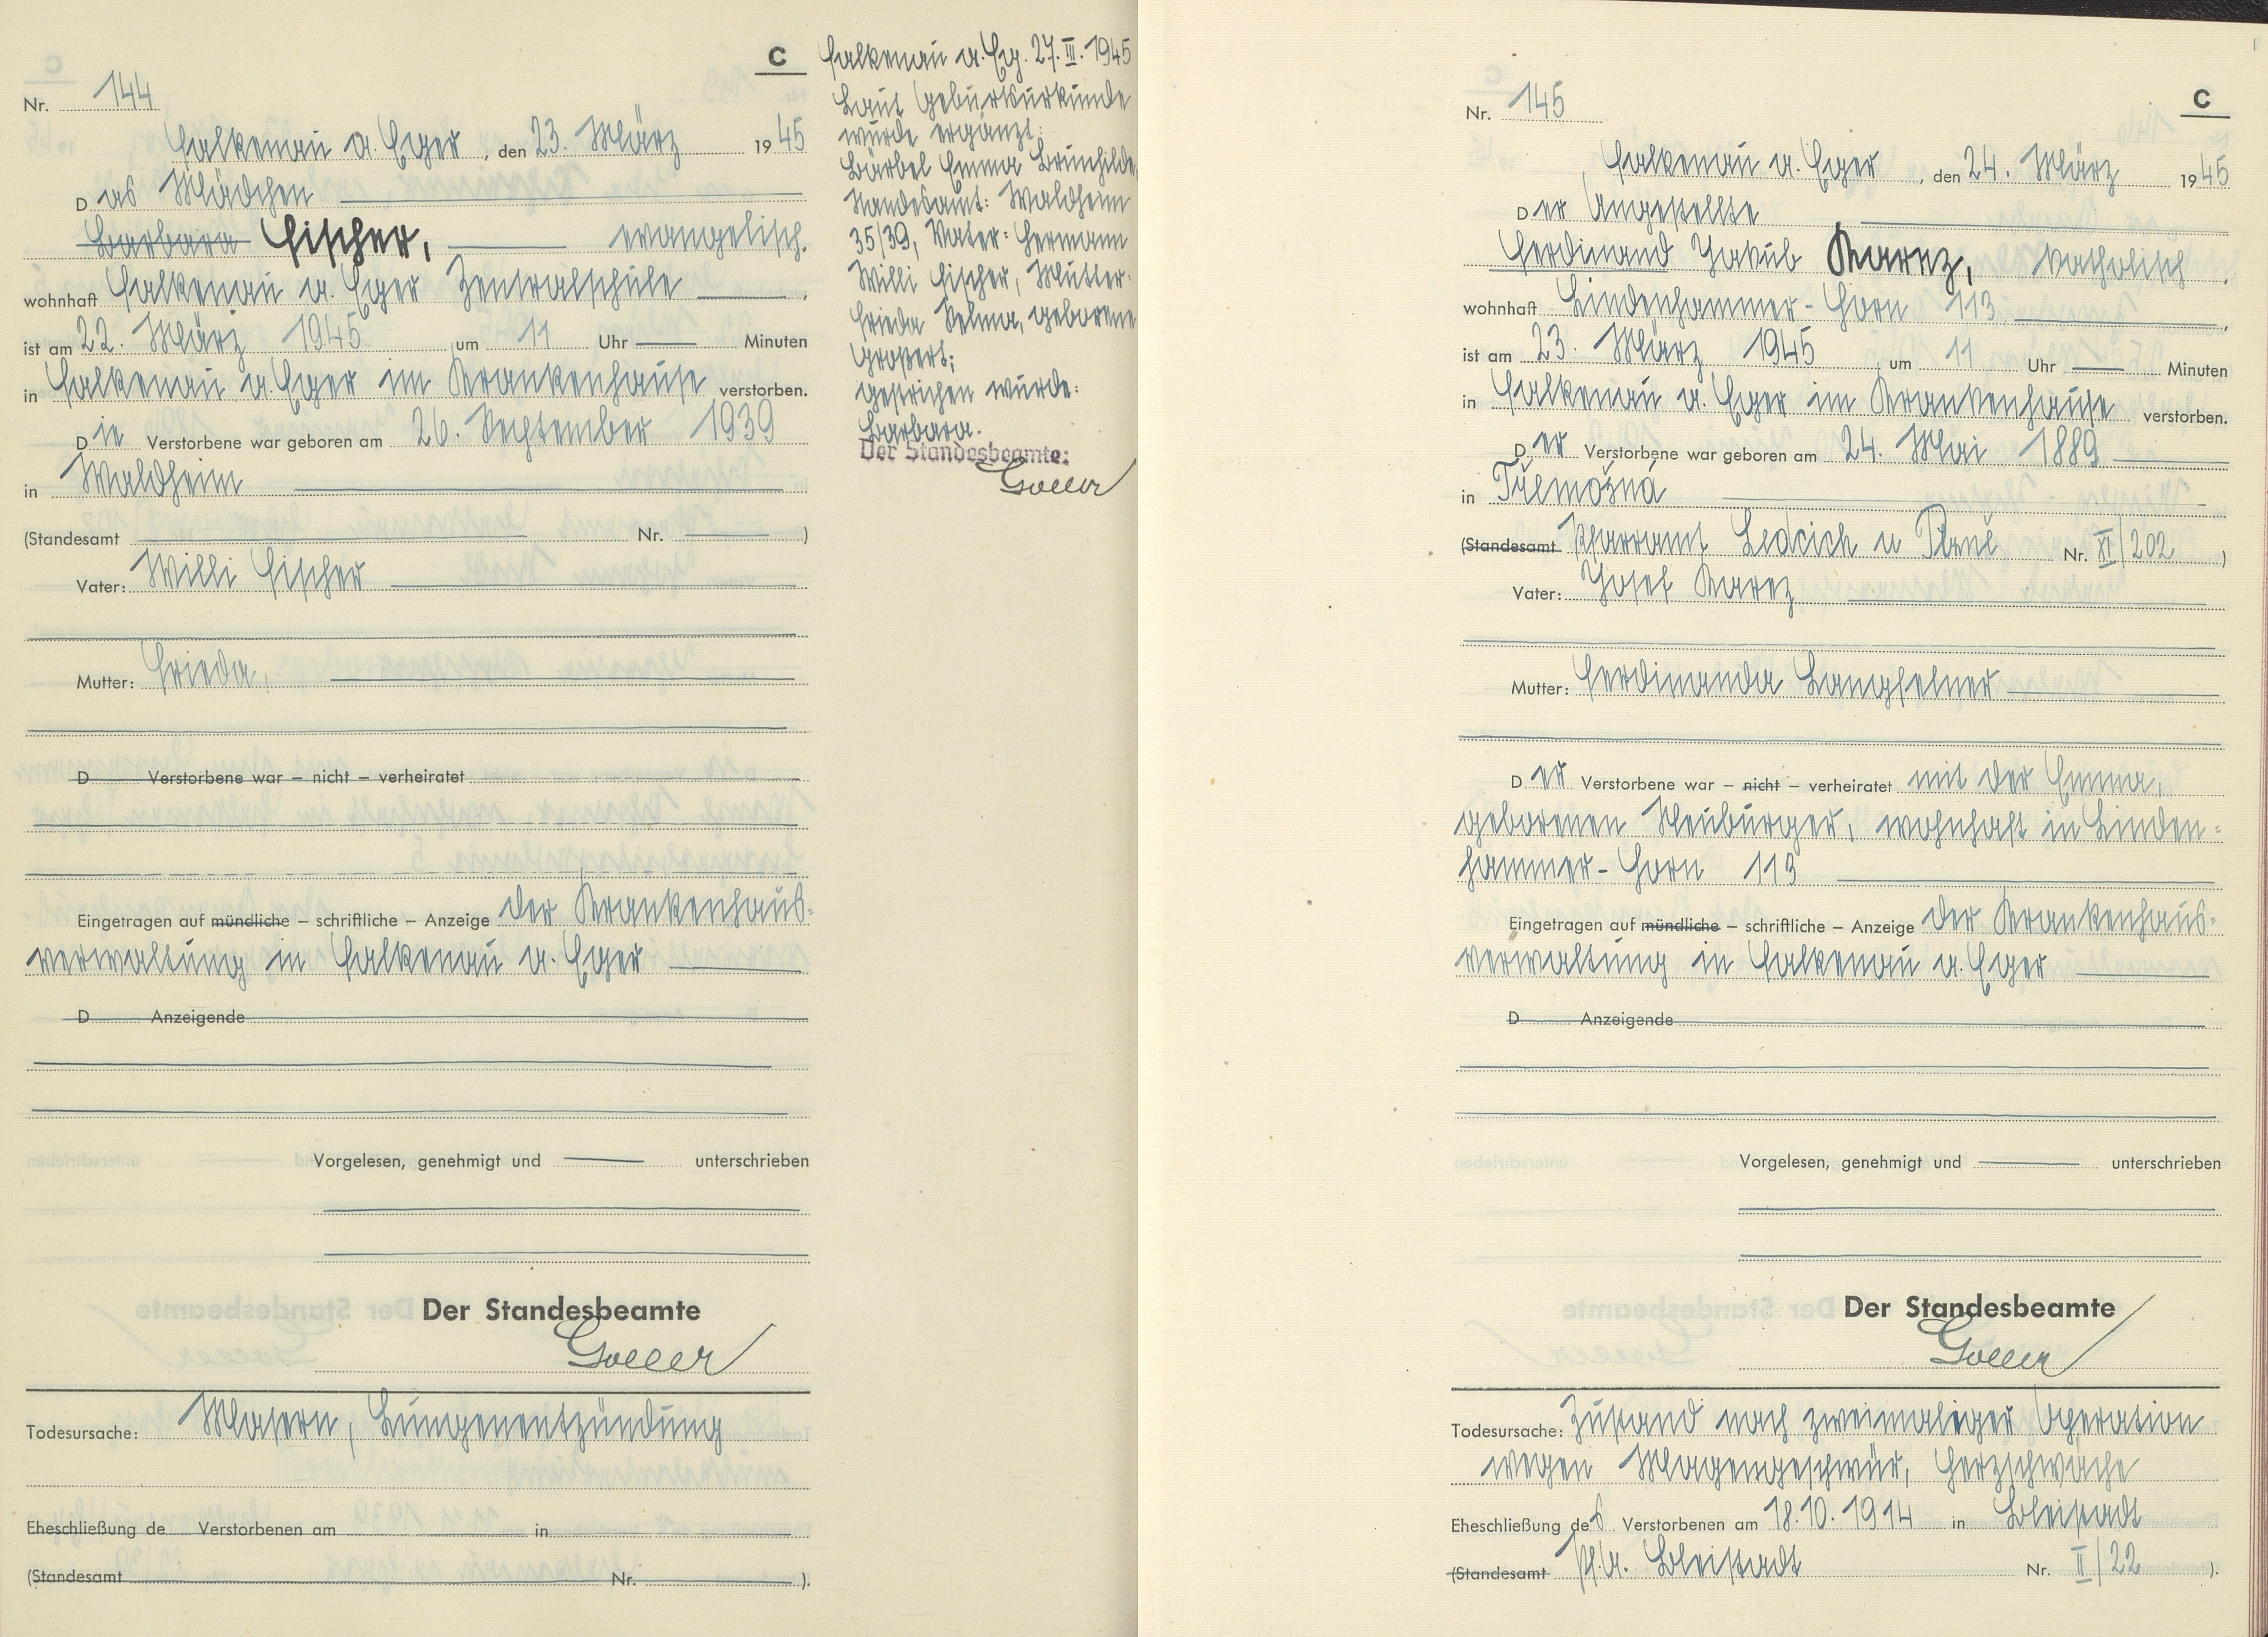 C
Nr. 144
Falkenau a. Eger, den 23. März 1945
Das Mädchen
Barbara Fischer, evangelisch.
wohnhaft Falkenau a. Eger Zentralschule,
ist am 22. März 1945 um 11 Uhr Minuten
in Falkenau a. Eger im Krankenhause verstorben.
Die Verstorbene war geboren am 26. September 1939
in Waldheim
(Standesamt Nr. )
Vater: Willi Fischer
Mutter: Frieda,
D Verstorbene war – nicht – verheiratet
Eingetragen auf mündliche – schriftliche – Anzeige der Krankenhaus-
verwaltung in Falkenau a. Eger
D Anzeigende
Vorgelesen, genehmigt und unterschrieben
Der Standesbeamte
Goller
Todesursache: Masern, Lungenentzündung
Eheschließung de Verstorbenen am in
(Standesamt Nr. ).
Falkenau a. Eg. 27. III. 1945
Laut Geburtsurkunde
wurde ergänzt:
Bärbel Emma Brunhilde,
Standesamt: Waldheim
35/39, Vater: Hermann
Willi Fischer, Mutter:
Frieda Selma, geborene
Großert;
gestrichen wurde:
Barbara.
Der Standesbeamte:
Goller
C
Nr. 145
Falkenau a. Eger, den 24. März 1945
Der Angestellte
Ferdinand Jakub Karez, katholisch,
wohnhaft Lindenhammer-Horn 113,
ist am 23. März 1945 um 11 Uhr Minuten
in Falkenau a. Eger im Krankenhause verstorben.
Der Verstorbene war geboren am 24. Mai 1889
in Třemožná
(Standesamt Pfarramt Ledcich u Plzně Nr. XI/202 )
Vater: Josef Karez
Mutter: Ferdinanda Langfelner
Der Verstorbene war – nicht – verheiratet mit der Emma,
geborenen Neuburger, wohnhaft in Linden-
hammer-Horn 113
Eingetragen auf mündliche – schriftliche – Anzeige der Krankenhaus-
verwaltung in Falkenau a. Eger
D Anzeigende
Vorgelesen, genehmigt und unterschrieben
Der Standesbeamte
Goller
Todesursache: Zustand nach zweimaliger Operation
wegen Magengeschwür, Herzschwäche
Eheschließung des Verstorbenen am 18.10.1914 in Bleistadt
(Standesamt Pf.A. Bleistadt Nr. II/22 ).